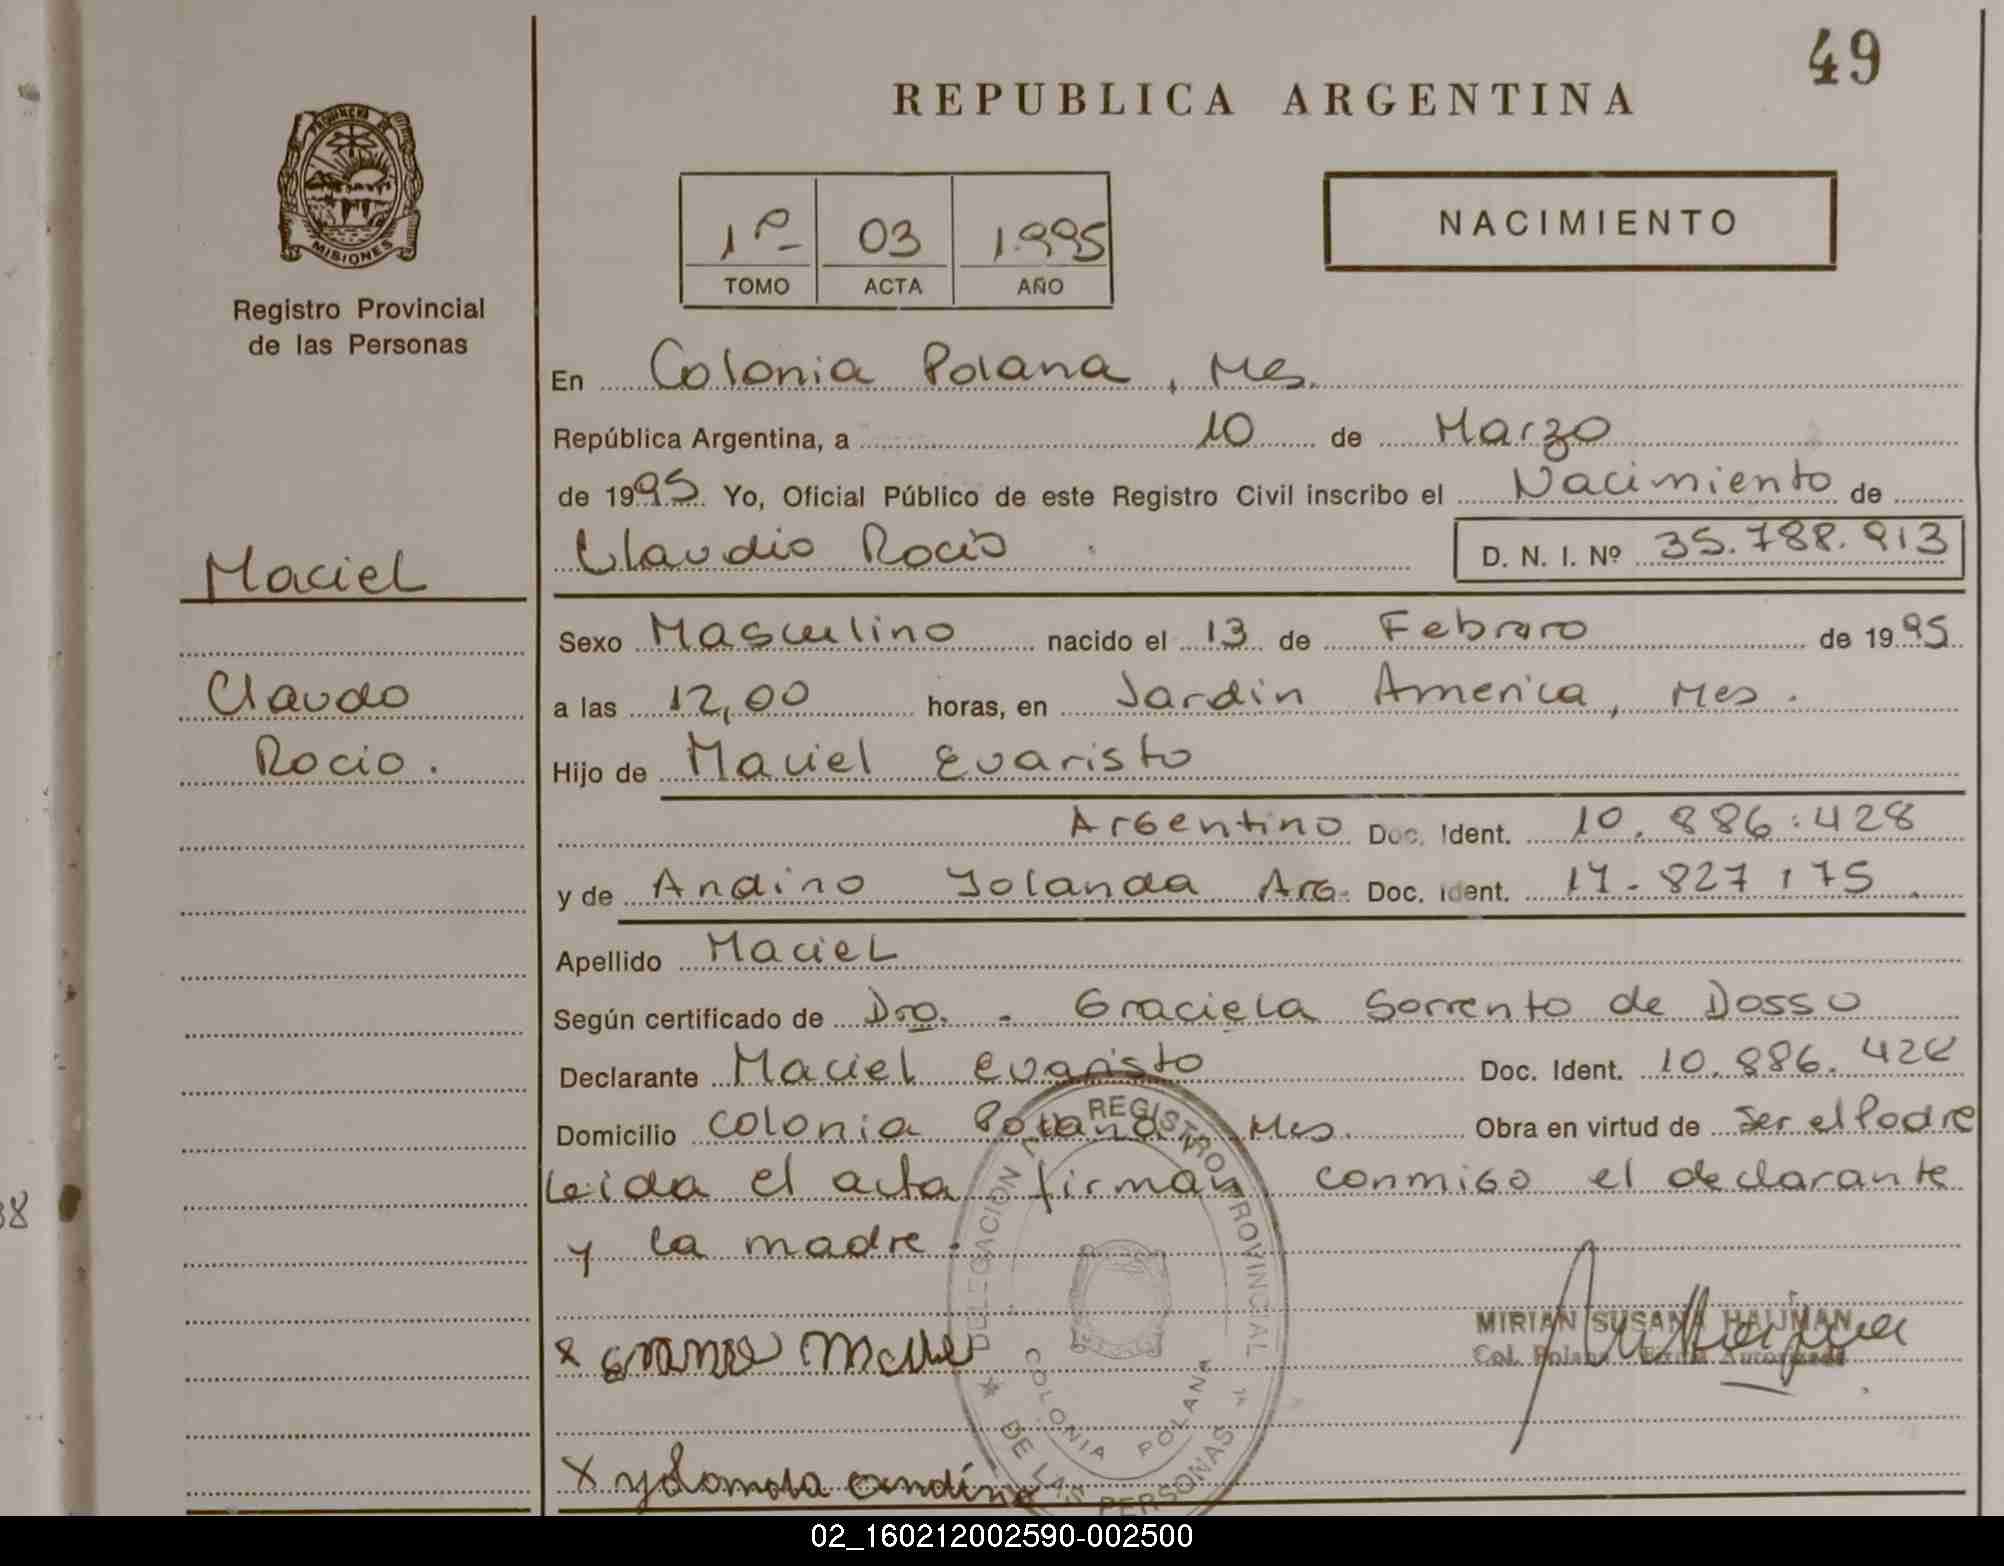 49
REPUBLICA ARGENTINA
PROVINCIA DE
MISIONES
Registro Provincial
de las Personas
1º 03 1.995
TOMO ACTA AÑO
NACIMIENTO
En Colonia Polana, Mes.
República Argentina, a 10 de Marzo
de 1995. Yo, Oficial Público de este Registro Civil inscribo el Nacimiento de
Claudio Rocio D. N. I. Nº 35.788.913
Maciel
Sexo Masculino nacido el 13 de Febrero de 1995
Claudo
a las 12,00 horas, en Jardin America, Mes.
Rocio.
Hijo de Maciel Evaristo
Argentino Doc. Ident. 10.886.428
y de Andino Yolanda Arg. Doc. Ident. 17.827175
Apellido Maciel
Según certificado de Dra. - Graciela Sorrento de Dosso
Declarante Maciel Evaristo Doc. Ident. 10.886.428
Domicilio Colonia Polana, Mes. Obra en virtud de Ser el Padre
Leida el acta firman conmigo el declarante
y la madre.
DELEGACION REGISTRO PROVINCIAL
DE LAS PERSONAS
COLONIA POLANA
MIRIAN SUSANA HAUMAN
Col. Polana Firma Autorizada
x
x yolanda andino
38
02_160212002590-002500